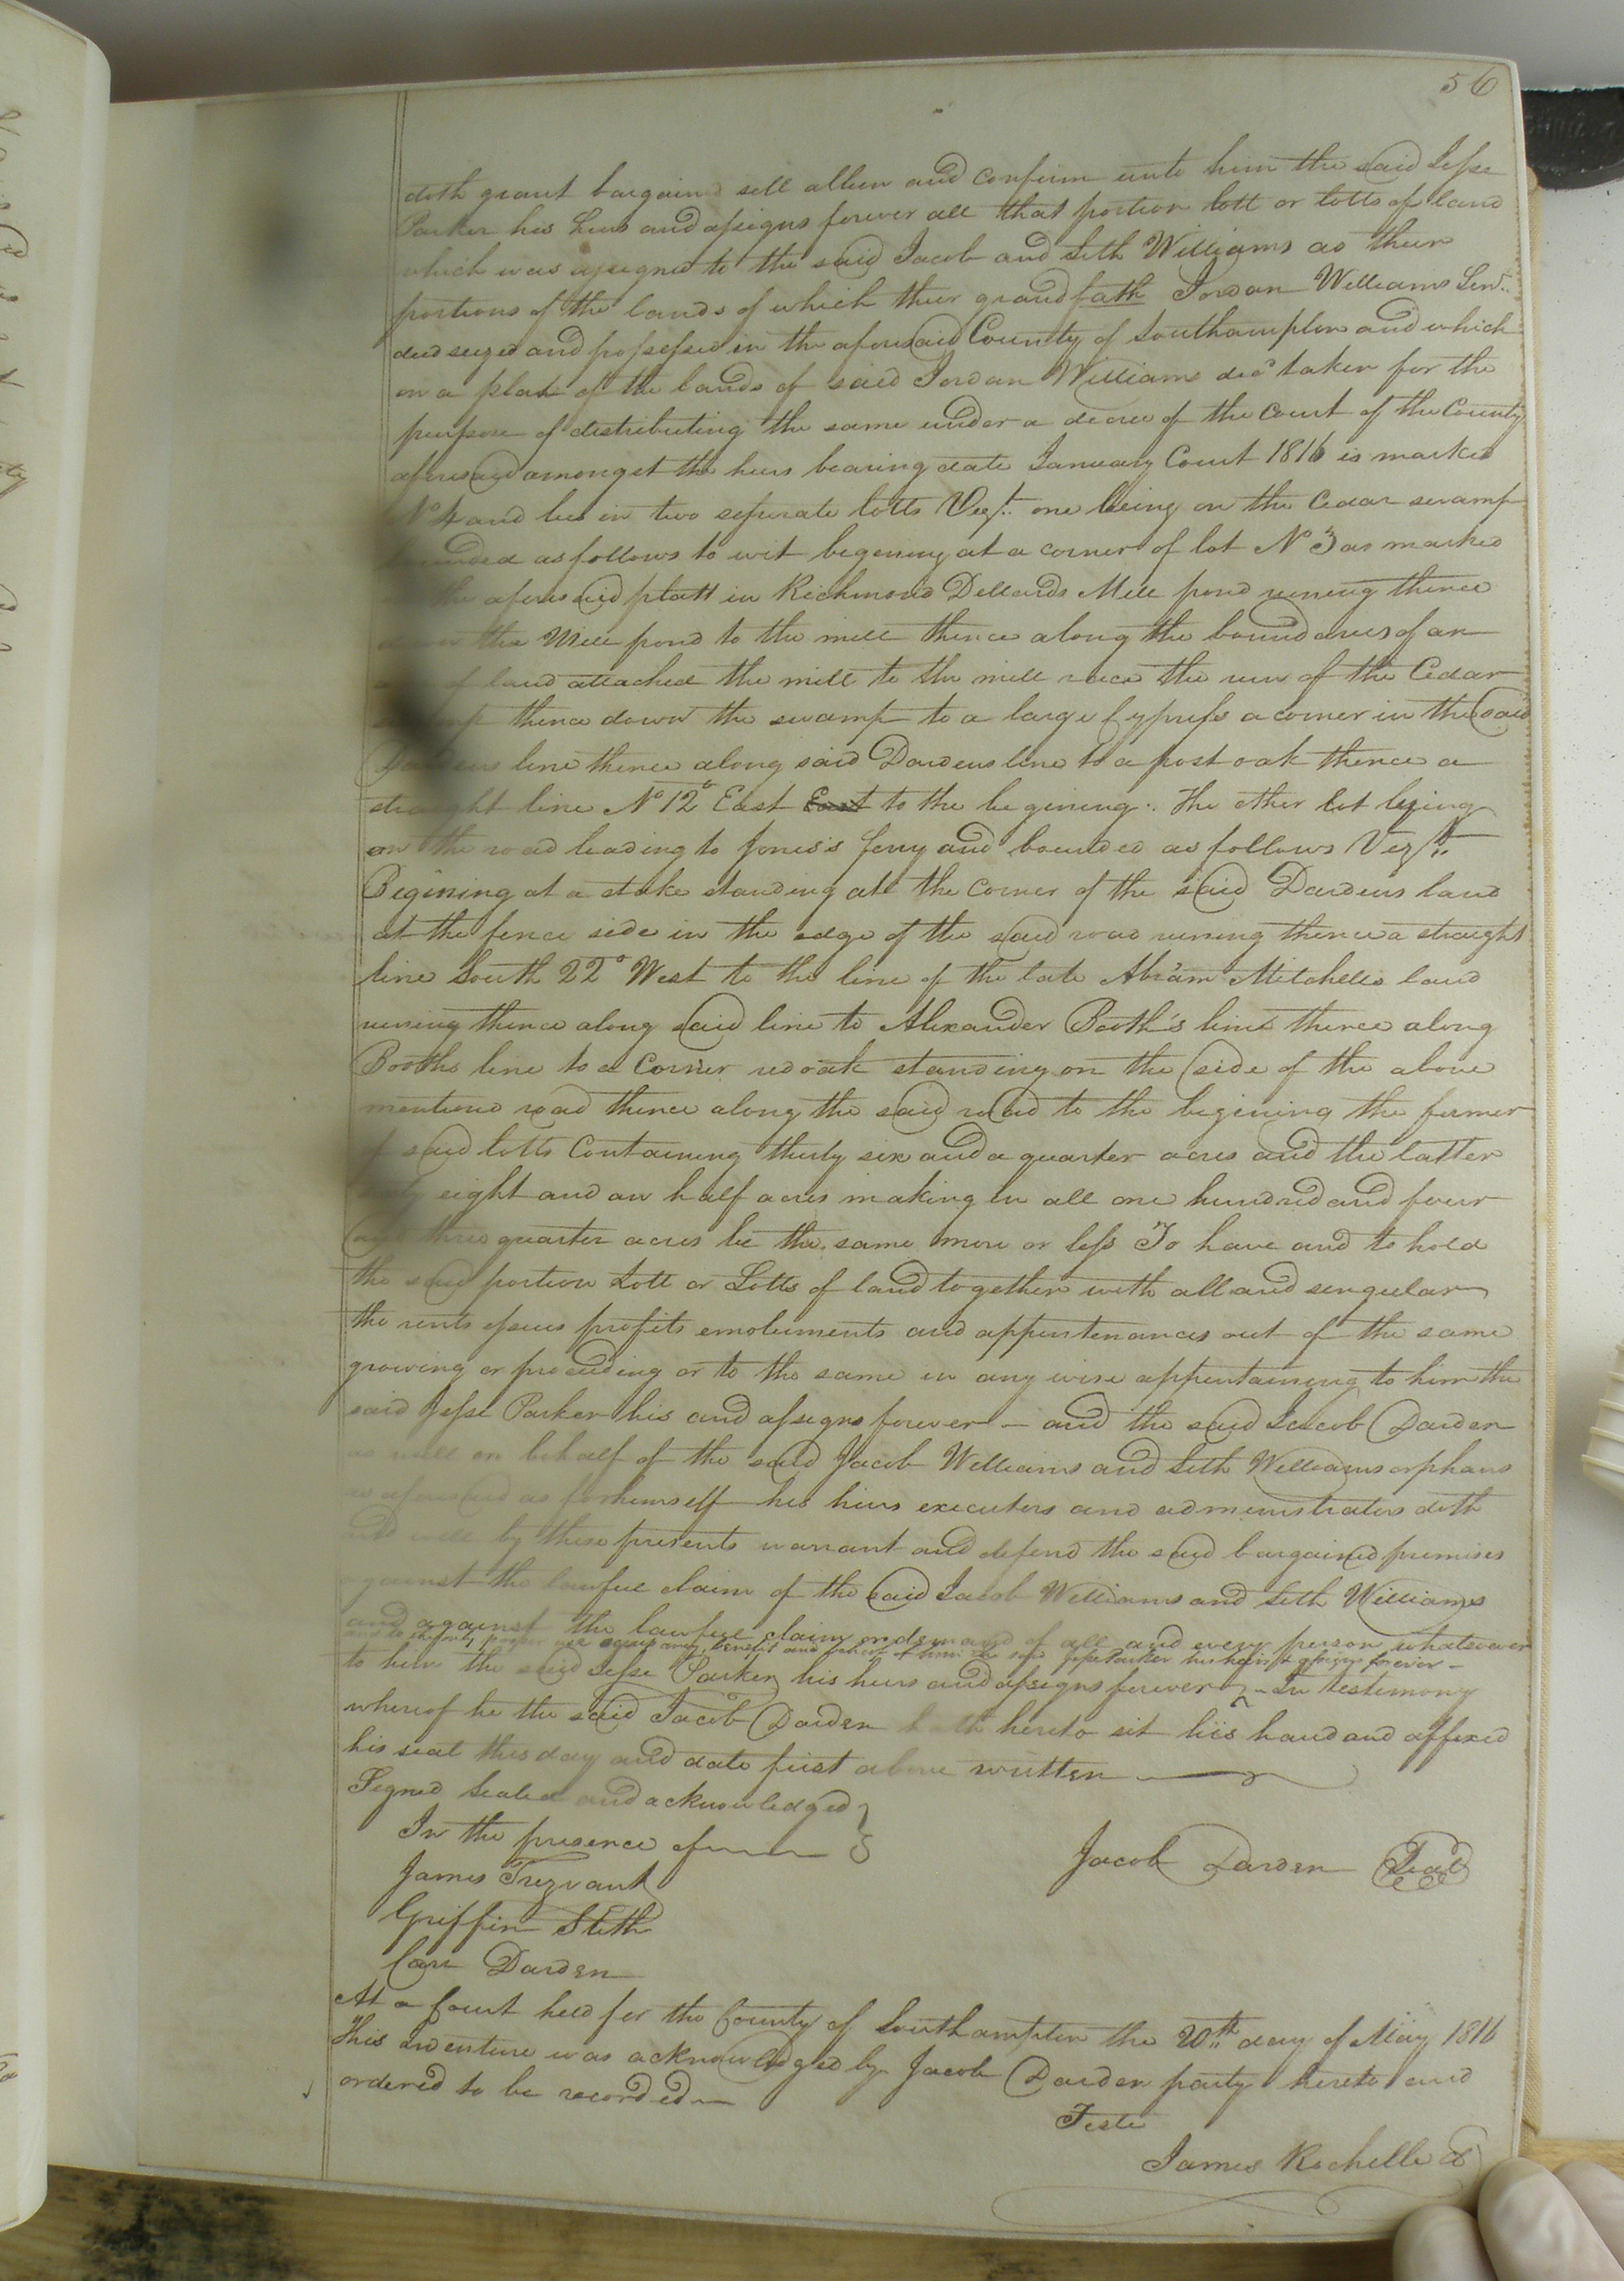 56
doth grant bargain sell allien and confirm unto him the said Jesse
Parker his heirs and assigns forever all that portion lott or lotts of land
which was assigned to the said Jacob and Seth Williams as their
portions of the lands of which their grandfath Jordan Williams Senr.
died seized and possessed in the aforesaid County of Southampton and which
on a plat of the lands of said Jordan Williams decd taken for the
purpose of distributing the same under a decree of the Court of the County
aforesaid amongst the heirs bearing date January Court 1816 is marked
No 4 and lies in two seperate lotts Vizt. one being on the Cedar swamp
bounded as follows to wit begening at a corner of lot No 3 as marked
the aforesaid platt in Richmond Dellards Mill pond runing thence
down the Mill pond to the mill thence along the boundaries of an
of land attached the mill to the mill race the run of the Cedar
swamp thence down the swamp to a large Cypress a corner in the said
Dardens line thence along said Dardens line to a post oak thence a
straight line No 12° East East to the begining. The other lot lying
on the road leading to Jones's ferry and bounded as follows Vizt.
Begining at a stake standing att the corner of the said Dardens land
at the fence side in the edge of the said road runing thence a straight
line South 22° West to the line of the late Abram Mitchells land
runing thence along said line to Alexander Booth's line thence along
Booths line to a Corner red oak standing on the side of the above
mentiond road thence along the said road to the begining the former
of said lotts Containing thirty six and a quarter acres and the latter
sixty eight and an half acres making in all one hundred and four
and three quarter acres be the same more or less To have and to hold
the said portion Lott or Lotts of land together with all and singular
the rents issues profits emoluments and appurtenances out of the same
growing or proceeding or to the same in any wise appurtaining to him the
said Jesse Parker his and assigns forever – and the said Jacob Darden
as well on behalf of the said Jacob Williams and Seth Williams orphans
as aforesaid as for himself his heirs executors and administrators doth
and will by these presents warrant and defend the said bargained premises
against the lawful claim of the said Jacob Williams and Seth Williams
and against the lawful claim or demand of all and every person whatsoever
and to the only proper use benefit and behoof of him the said Jesse Parker his heirs & assigns forever –
to him the said Jesse Parker his heirs and assigns forever – In testimony
whereof he the said Jacob Darden hath hereto sit his hand and affixed
his seal this day and date first above written
Signed Sealed and acknowledged
In the presence of
Jacob Darden Seal
James Trezvant
Griffin Stith
Carr Darden
At a Court held for the County of Southampton the 20th day of May 1816
This Indenture was acknowledged by Jacob Darden party hereto and
ordered to be recorded
Teste
James Rochelle